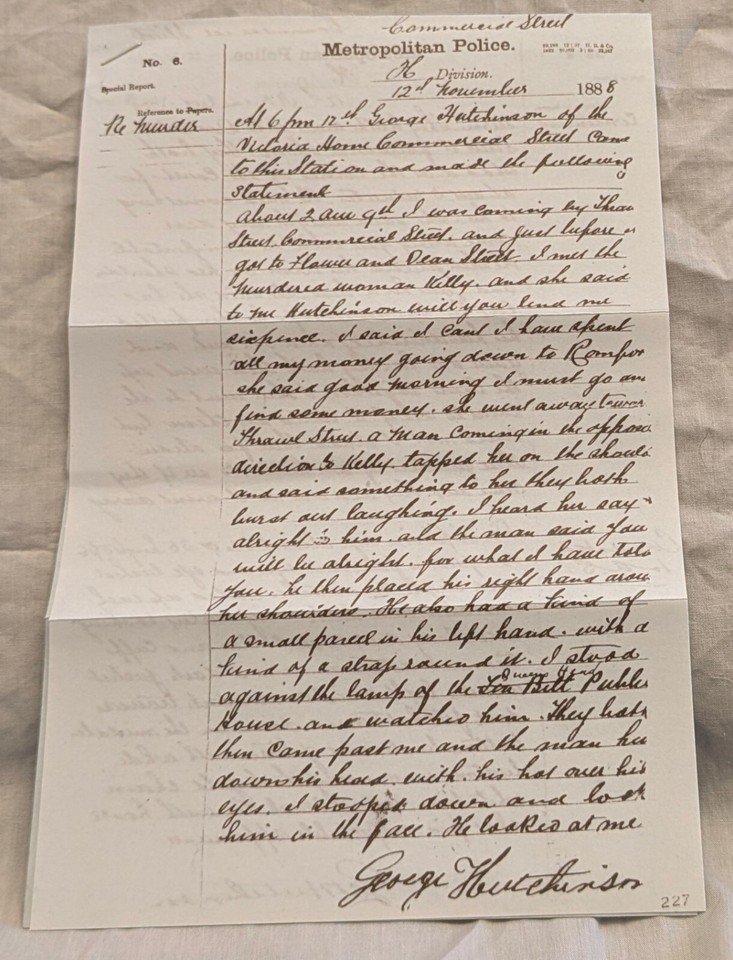 Commercial Street
No. 6.
Metropolitan Police.
Special Report.
H Division.
12th November 1888
Reference to Papers.
Re Murder
At 6 pm 12th George Hutchinson of the
Victoria Home Commercial Street Came
to this Station and made the following
Statement
About 2 am 9th I was coming by Thraw
Street Commercial Street. and Just before
got to Flower and Dean Street I met the
Murdered woman Kelly. and she said
to me Hutchinson will you lend me
sixpence. I said I cant I have spent
all my money going down to Romfor
she said good morning I must go an
find some money. she went away towar
Thrawl Street. a man coming in the oppos
direction to Kelly tapped her on the should
and said something to her they both
burst out laughing. I heard her say
alright to him. and the man said you
will be alright. for what I have told
you. he then placed his right hand aroun
her shoulders. He also had a kind of
a small parcel in his left hand. with a
kind of a strap round it. I stood
against the lamp of the Ten Bell Queen Head Public
House. and watched him. They both
then came past me and the man hu
down his head. with. his hat over his
eyes. I stooped down and look
him in the face. He looked at me
George Hutchinson
227